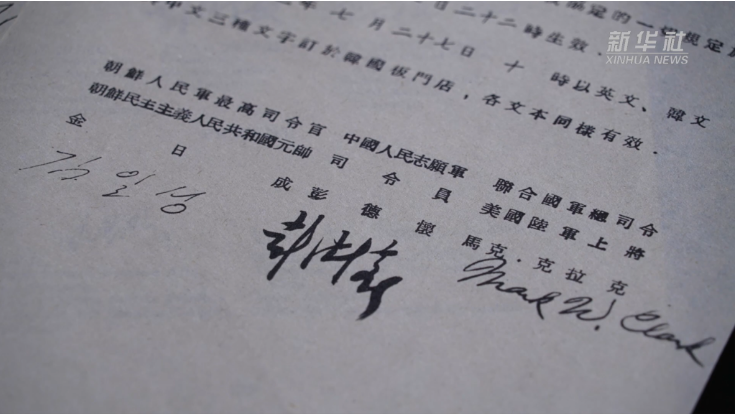 新华社
XINHUA NEWS
的一切規定
日二十二時生效．
年 七 月 二十七 日 十 時以英文、韓文
中文三種文字訂於韓國板門店，各文本同樣有效．
朝鮮人民軍最高司令官 中國人民志願軍 聯合國軍總司令
朝鮮民主主義人民共和國元帥 司 令 員 美國陸軍上將
金 日 成 彭 德 懷 馬克·克拉克
김일성 彭德懷 Mark W. Clark